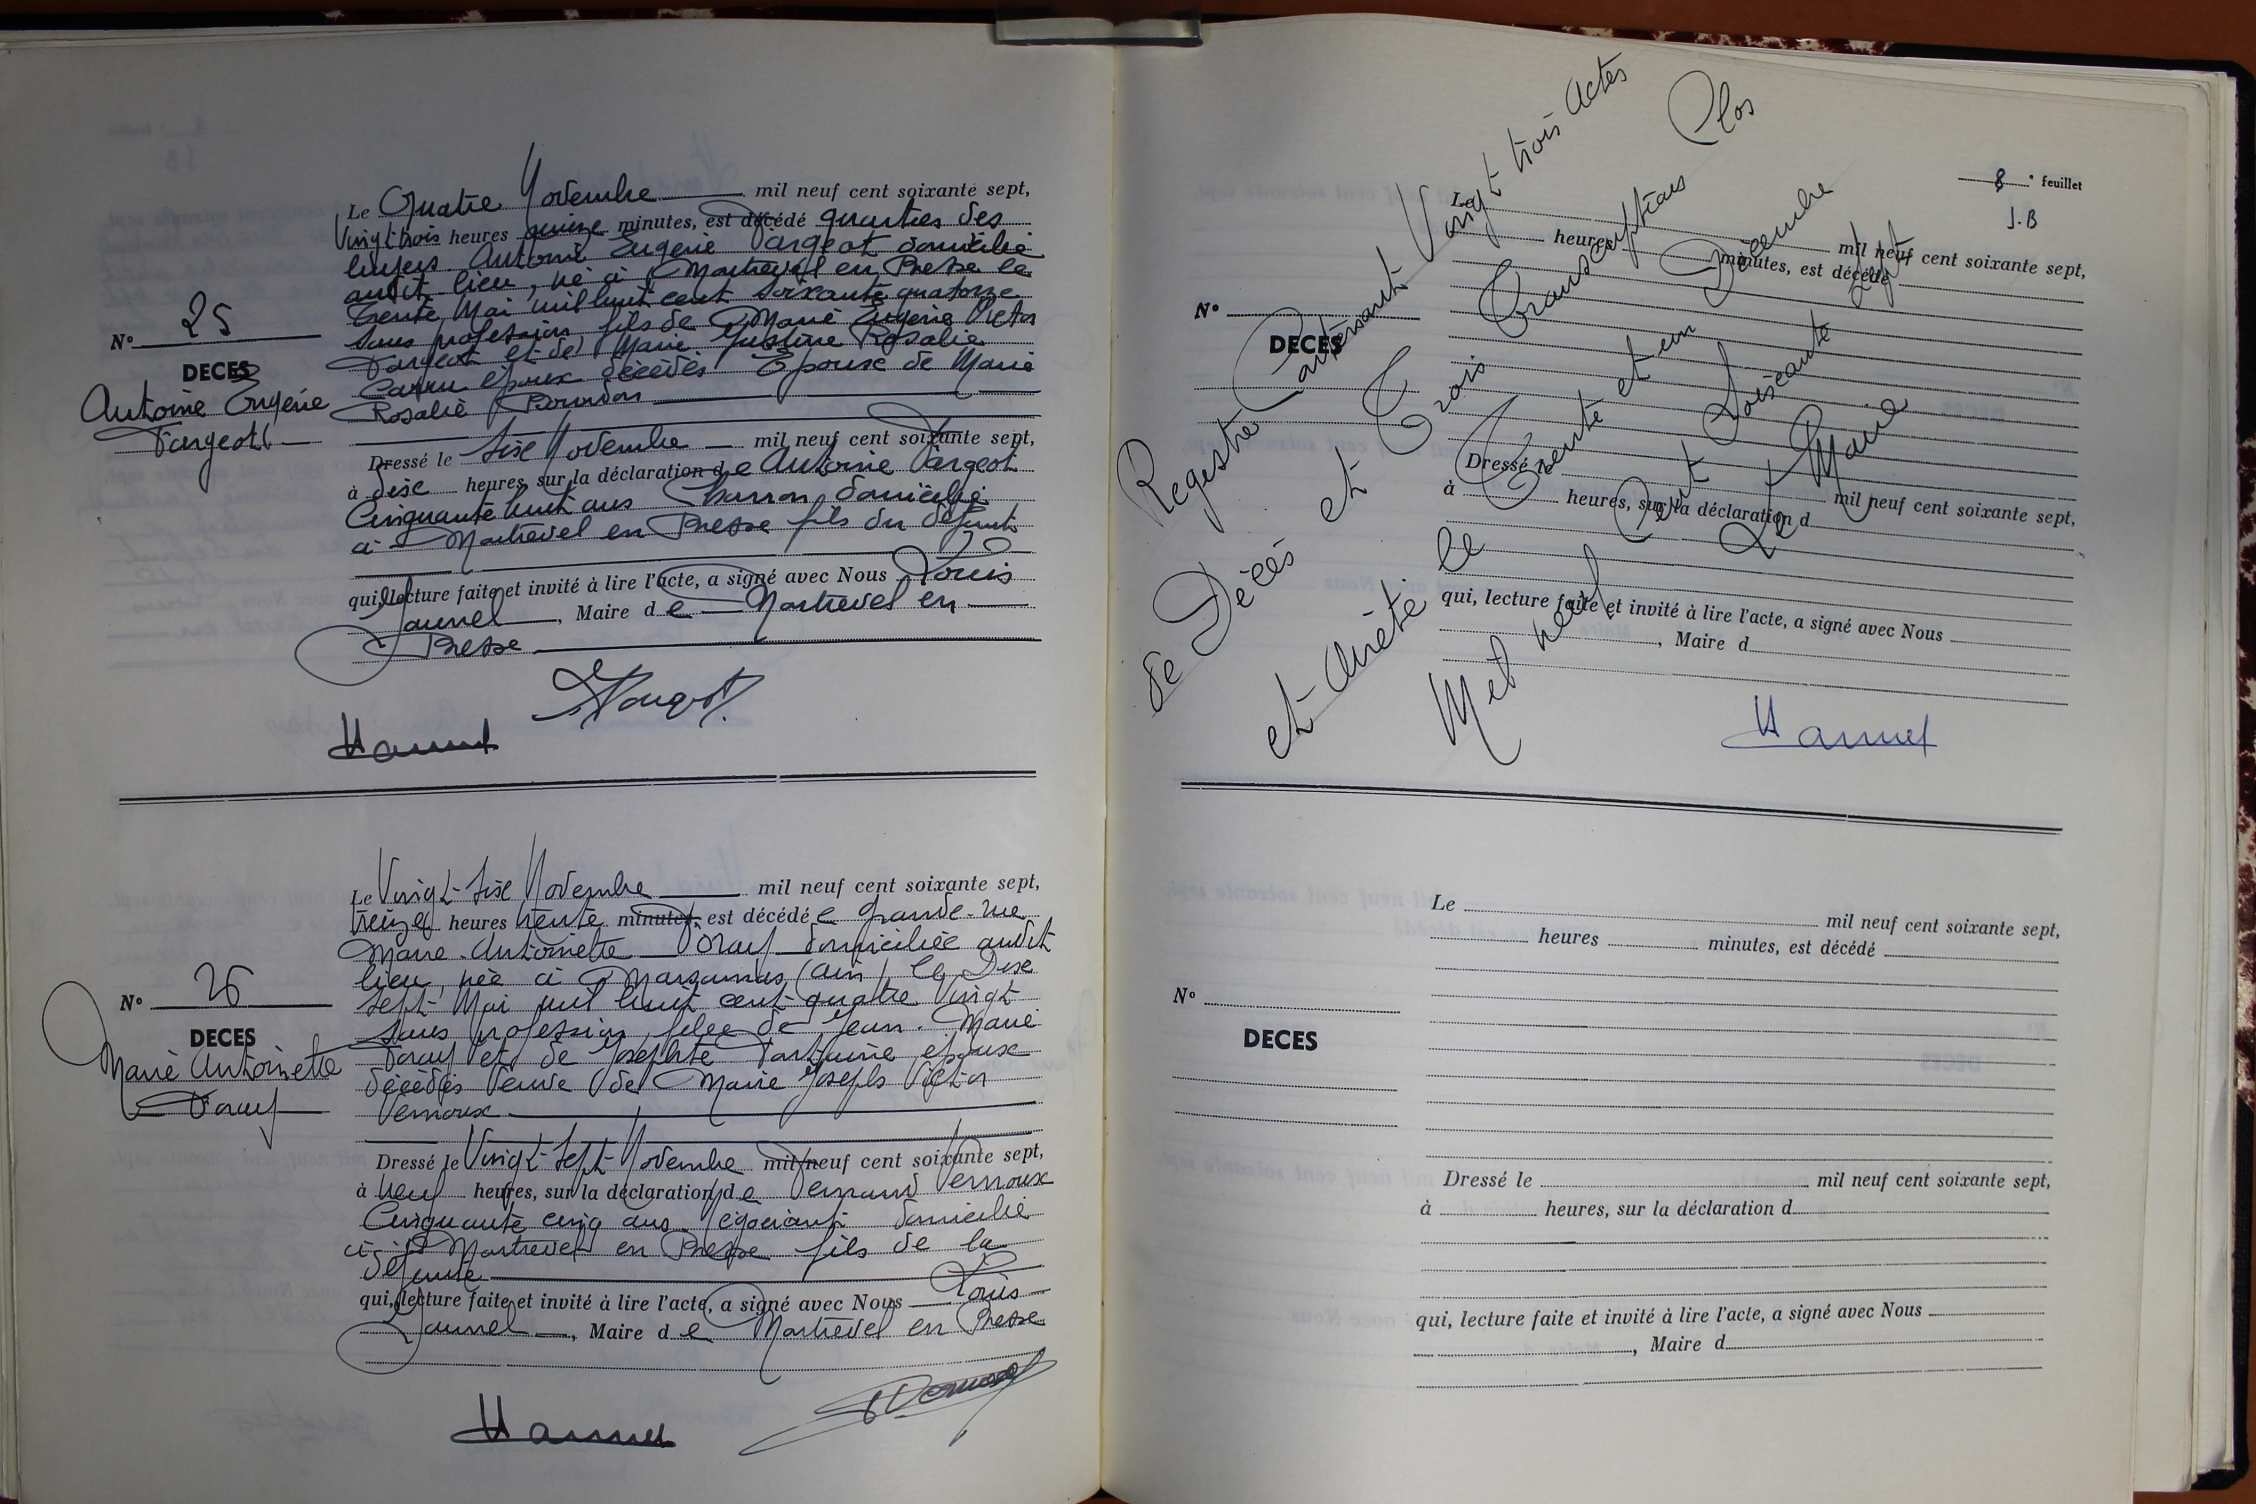 N° 25
DECES
Antoine Eugénie
Fargeot
Le Quatre Novembre mil neuf cent soixante sept,
Vingt trois heures quinze minutes, est décédé quartier des
Antoine Eugénie Fargeot domicilié
audit lieu, né à Montrevel en Bresse le
trente Mai mil huit cent soixante quatorze
sans profession fils de Marie Eugène Victor
Fargeot et de Marie Justine Rosalie
époux décédés Epoux de Marie
Rosalie Bourdon
Dressé le six Novembre mil neuf cent soixante sept,
à dixe heures, sur la déclaration de Antoine Fargeot
Cinquante huit ans Charron domicilié
à Montrevel en Bresse fils du défunt
qui, lecture faite et invité à lire l'acte, a signé avec Nous Louis
Jaunet, Maire de Montrevel en
Bresse
N° 26
DECES
Marie Antoinette
Le Vingt-six Novembre mil neuf cent soixante sept,
treize heures trente minutes, est décédée grande-rue
Marie-Antoinette domiciliée audit
lieu, née à Marsonnas (Ain) le Dixe
sept Mai mil huit cent quatre Vingt
sans profession fille de Jean-Marie
et de Josephte époux
décédés Veuve de Marie Joseph Victor
Vernoux
Dressé le Vingt-Sept Novembre mil neuf cent soixante sept,
à neuf heures, sur la déclaration de Fernand Vernoux
Cinquante cinq ans Négociant domicilié
à Montrevel en Bresse fils de la
défunte
qui, lecture faite et invité à lire l'acte, a signé avec Nous Louis
Jaunet, Maire de Montrevel en Bresse
8e feuillet
J.B
Registre Contenant Vingt trois Actes
de Décés et Trois Transcriptions Clos
et Arrêté le Trente et un Décembre
Mil neuf Cent Soixante sept
Le Maire
Le mil neuf cent soixante sept,
heures minutes, est décédé
N°
DECES
Dressé le mil neuf cent soixante sept,
à heures, sur la déclaration d
qui, lecture faite et invité à lire l'acte, a signé avec Nous
, Maire d
Le mil neuf cent soixante sept,
heures minutes, est décédé
N°
DECES
Dressé le mil neuf cent soixante sept,
à heures, sur la déclaration d
qui, lecture faite et invité à lire l'acte, a signé avec Nous
, Maire d